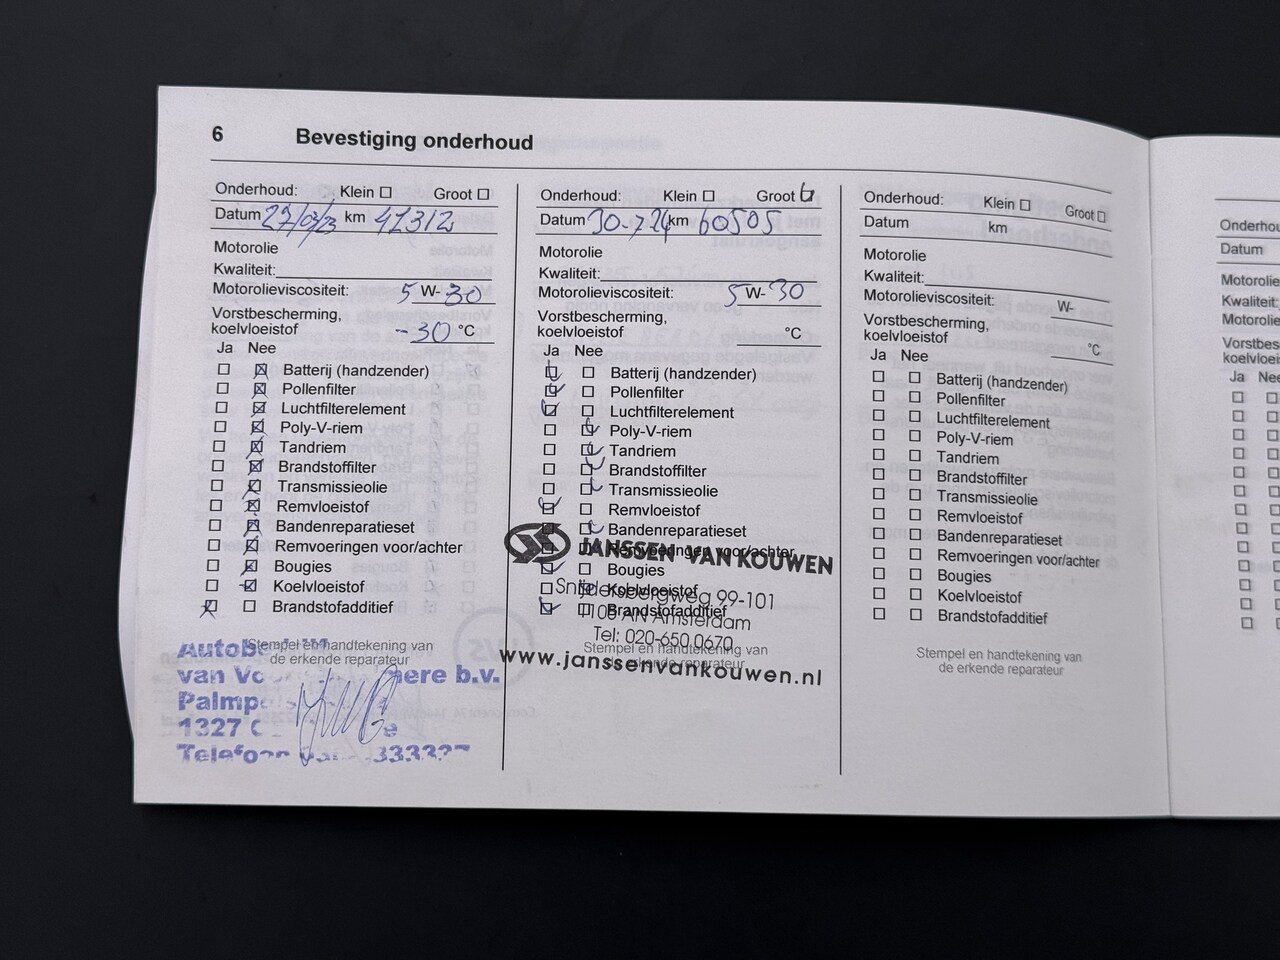 6 Bevestiging onderhoud
Onderhoud: Klein Groot
Datum km 47312
Motorolie
Kwaliteit:
Motorolieviscositeit: 5 W-30
Vorstbescherming,
koelvloeistof -30 °C
Ja Nee
Batterij (handzender)
Pollenfilter
Luchtfilterelement
Poly-V-riem
Tandriem
Brandstoffilter
Transmissieolie
Remvloeistof
Bandenreparatieset
Remvoeringen voor/achter
Bougies
Koelvloeistof
Brandstofadditief
Stempel en handtekening van
de erkende reparateur
van b.v.
1327
Onderhoud: Klein Groot
Datum 30-7-24 km 60505
Motorolie
Kwaliteit:
Motorolieviscositeit: 5 W-30
Vorstbescherming,
koelvloeistof °C
Ja Nee
Batterij (handzender)
Pollenfilter
Luchtfilterelement
Poly-V-riem
Tandriem
Brandstoffilter
Transmissieolie
Remvloeistof
Bandenreparatieset
Remvoeringen voor/achter
JANSSEN VAN KOUWEN
Bougies
Koelvloeistof
Snijdersbergweg 99-101
Brandstofadditief
1105 AN Amsterdam
Tel: 020-650 0670
Stempel en handtekening van
de erkende reparateur
www.janssenvankouwen.nl
Onderhoud: Klein Groot
Datum km
Motorolie
Kwaliteit:
Motorolieviscositeit: W-
Vorstbescherming,
koelvloeistof °C
Ja Nee
Batterij (handzender)
Pollenfilter
Luchtfilterelement
Poly-V-riem
Tandriem
Brandstoffilter
Transmissieolie
Remvloeistof
Bandenreparatieset
Remvoeringen voor/achter
Bougies
Koelvloeistof
Brandstofadditief
Stempel en handtekening van
de erkende reparateur
Datum
Kwaliteit:
Ja Nee